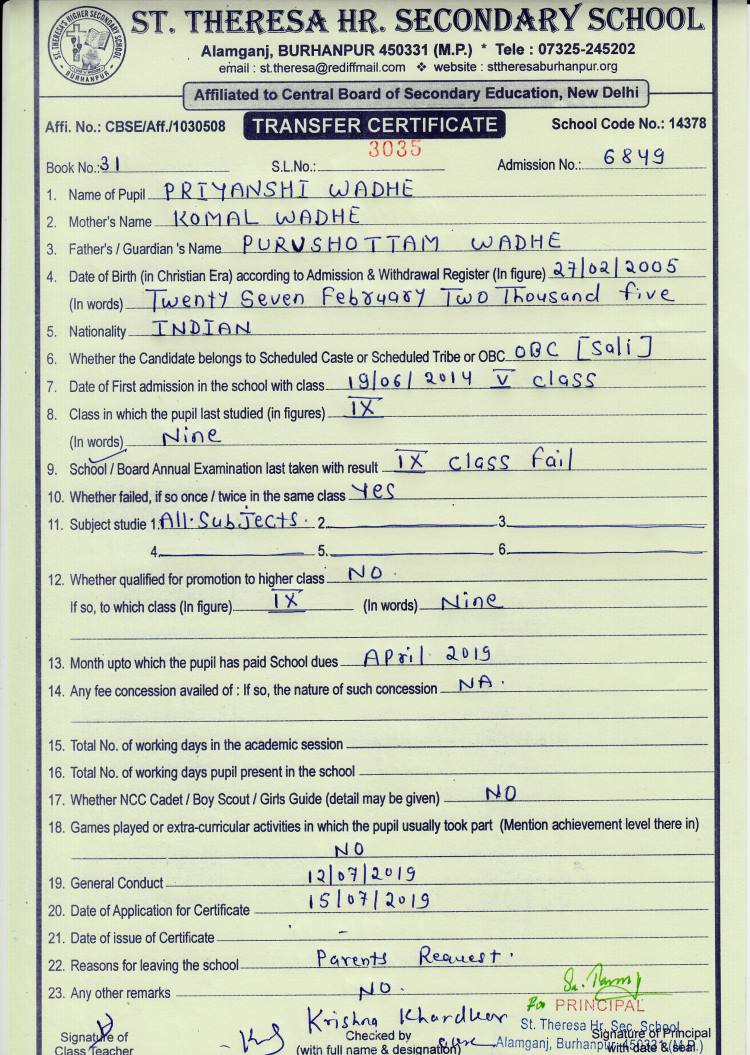 ST. THERESA HR. SECONDARY SCHOOL
ST. THERESA'S HIGHER SECONDARY SCHOOL
BURHANPUR
Alamganj, BURHANPUR 450331 (M.P.) * Tele : 07325-245202
email : st.theresa@rediffmail.com ❖ website : sttheresaburhanpur.org
Affiliated to Central Board of Secondary Education, New Delhi
Affi. No.: CBSE/Aff./1030508 TRANSFER CERTIFICATE School Code No.: 14378
Book No.: 31 S.L.No.: 3035 Admission No.: 6849
1. Name of Pupil PRIYANSHI WADHE
2. Mother's Name KOMAL WADHE
3. Father's / Guardian 's Name PURUSHOTTAM WADHE
4. Date of Birth (in Christian Era) according to Admission & Withdrawal Register (In figure) 27/02/2005
(In words) Twenty Seven February Two Thousand five
5. Nationality INDIAN
6. Whether the Candidate belongs to Scheduled Caste or Scheduled Tribe or OBC OBC [Sali]
7. Date of First admission in the school with class 19/06/2014 V class
8. Class in which the pupil last studied (in figures) IX
(In words) Nine
9. School / Board Annual Examination last taken with result IX class fail
10. Whether failed, if so once / twice in the same class Yes
11. Subject studie 1. All Subjects. 2. 3.
4. 5. 6.
12. Whether qualified for promotion to higher class NO.
If so, to which class (In figure) IX (In words) Nine
13. Month upto which the pupil has paid School dues April 2019
14. Any fee concession availed of : If so, the nature of such concession NA.
15. Total No. of working days in the academic session
16. Total No. of working days pupil present in the school
17. Whether NCC Cadet / Boy Scout / Girls Guide (detail may be given) NO
18. Games played or extra-curricular activities in which the pupil usually took part (Mention achievement level there in)
NO
19. General Conduct 12/07/2019
20. Date of Application for Certificate 15/07/2019
21. Date of issue of Certificate -
22. Reasons for leaving the school Parents Request.
23. Any other remarks NO.
For PRINCIPAL
Krishna Khardkar
St. Theresa Hr. Sec. School
Signature of Checked by Signature of Principal
Alamganj, Burhanpur 450331 (M.P.)
Class Teacher (with full name & designation) with date & seal.